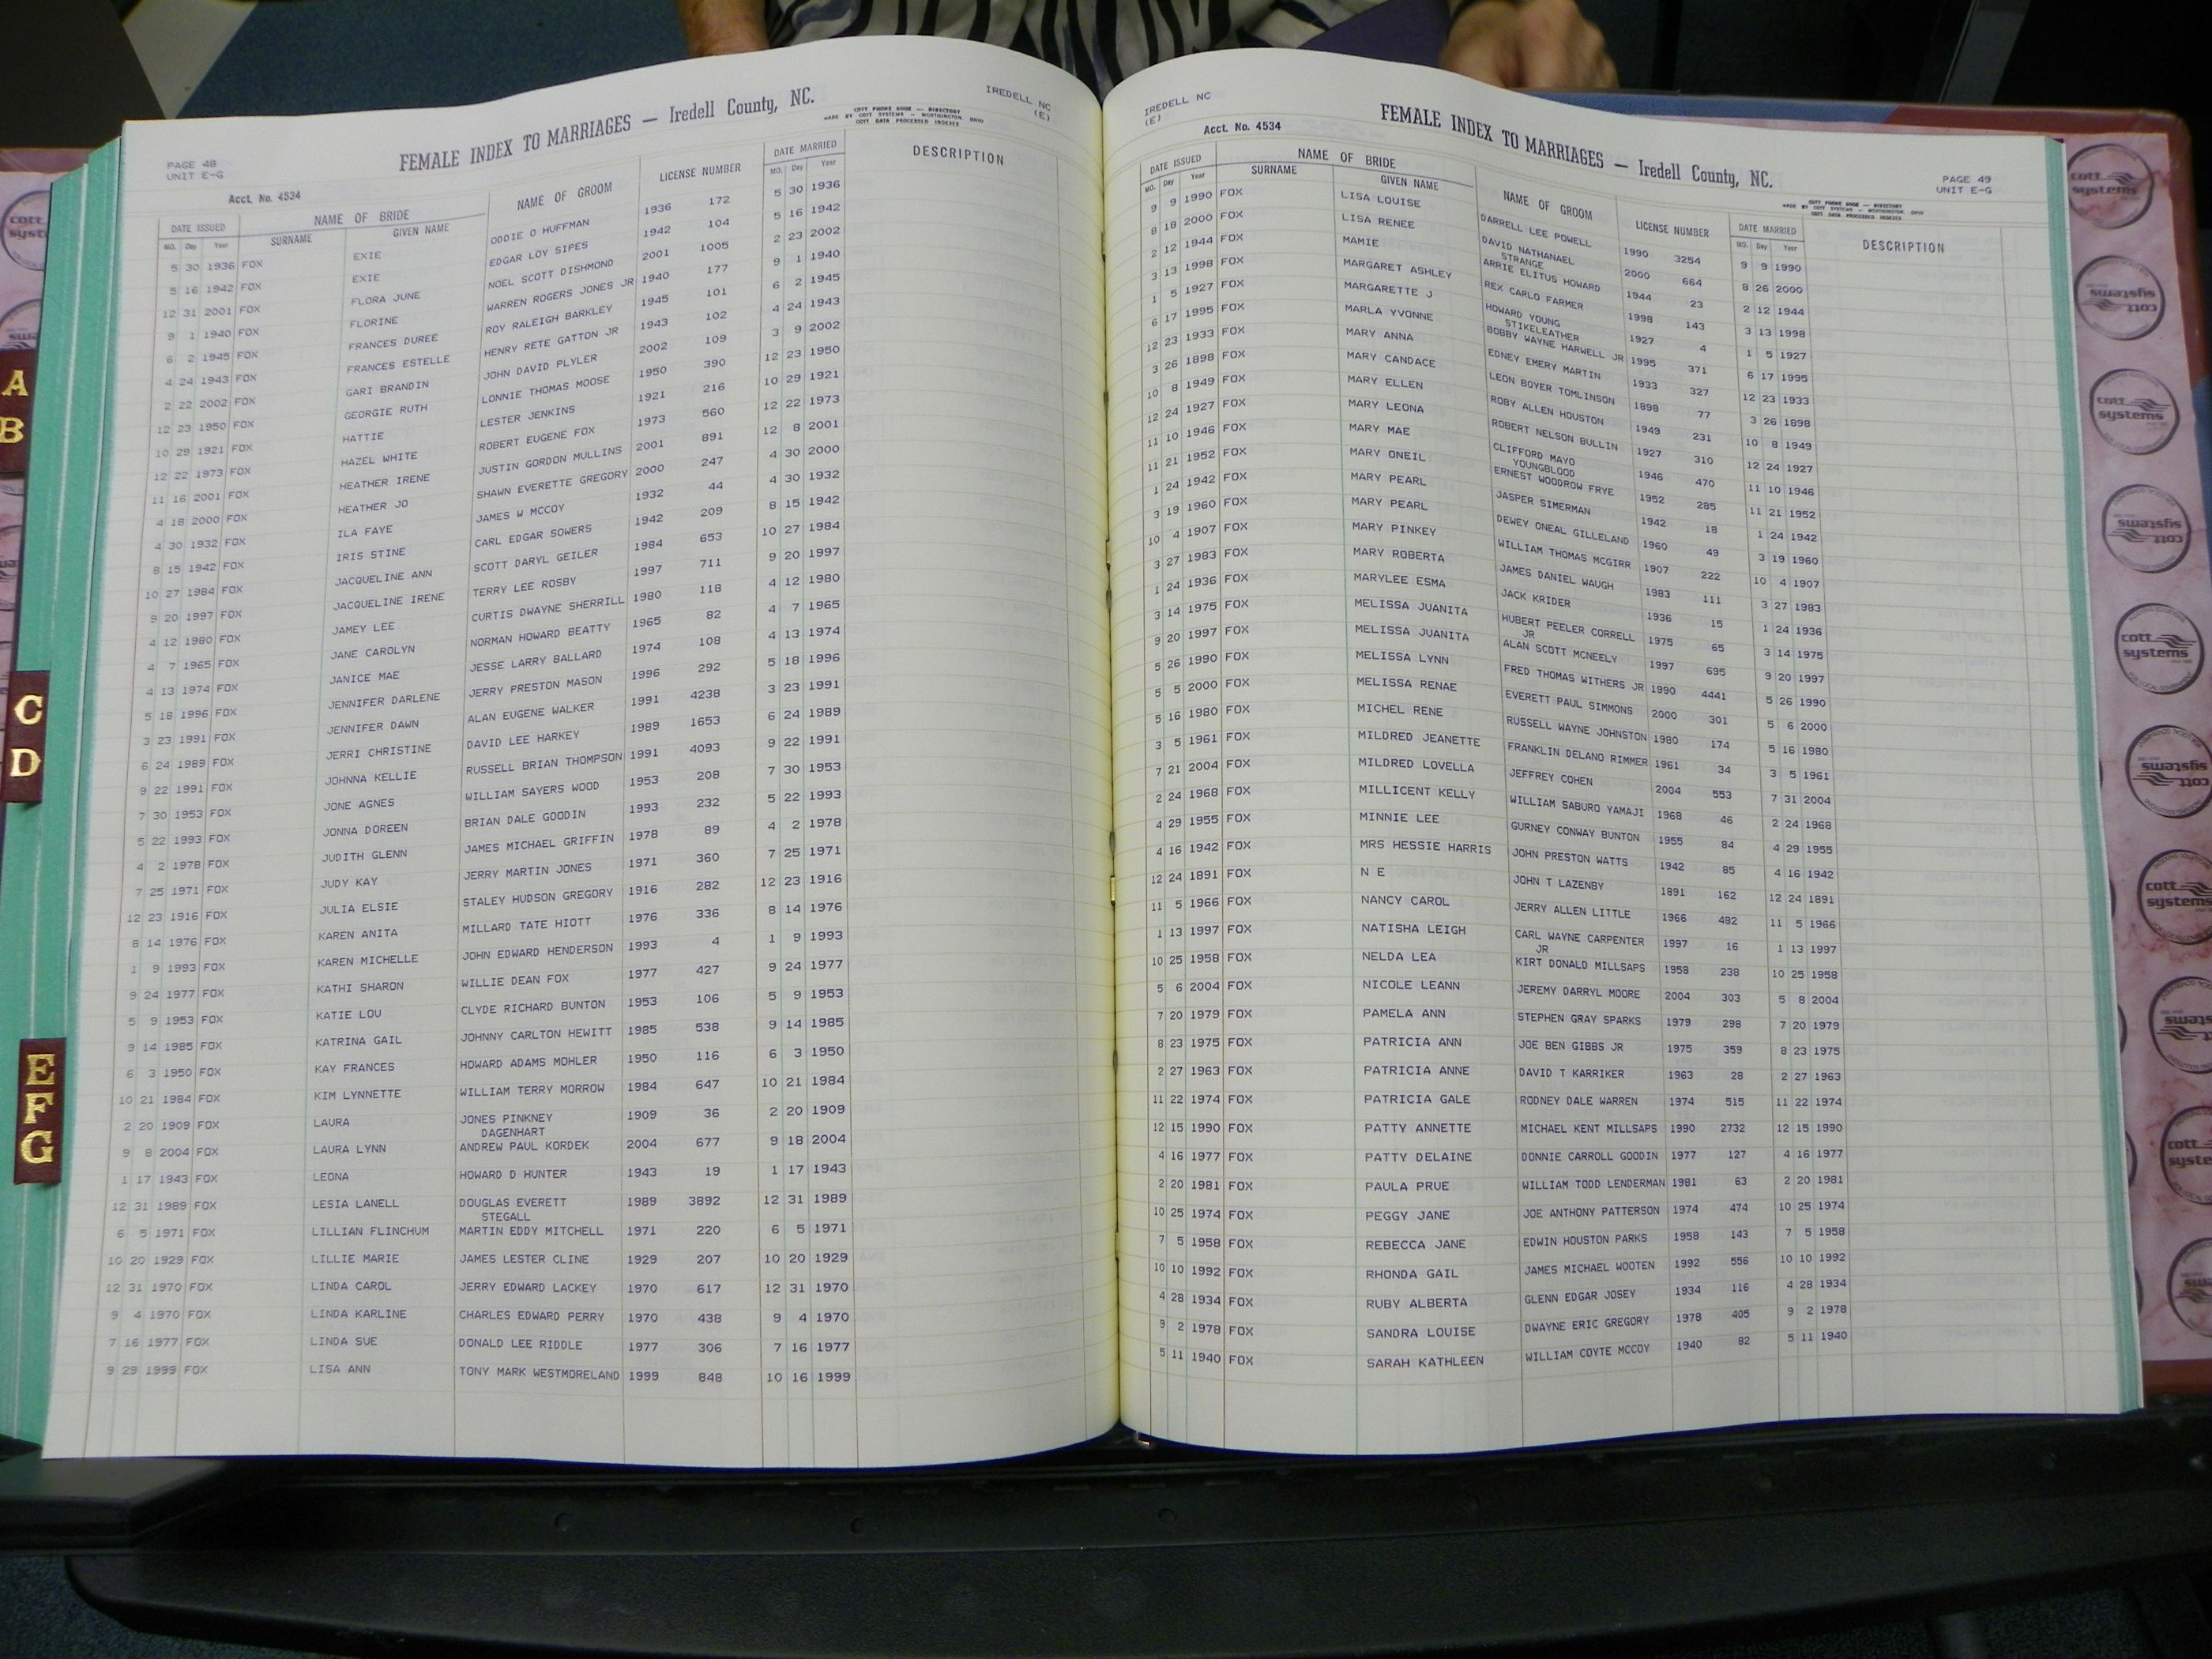 IREDELL NC
(E)
FEMALE INDEX TO MARRIAGES — Iredell County, NC.
COTT PHONE BOOK — DIRECTORY
MADE BY COTT SYSTEMS — WORTHINGTON, OHIO
COTT DATA PROCESSED INDEXES
PAGE 48
UNIT E-G
Acct. No. 4534
DATE ISSUED NAME OF BRIDE NAME OF GROOM LICENSE NUMBER DATE MARRIED DESCRIPTION
MO. Day Year SURNAME GIVEN NAME MO. Day Year
5 30 1936 FOX EXIE ODDIE O HUFFMAN 1936 172 5 30 1936
5 16 1942 FOX EXIE EDGAR LOY SIPES 1942 104 5 16 1942
12 31 2001 FOX FLORA JUNE NOEL SCOTT DISHMOND 2001 1005 2 23 2002
9 1 1940 FOX FLORINE WARREN ROGERS JONES JR 1940 177 9 1 1940
6 2 1945 FOX FRANCES DUREE ROY RALEIGH BARKLEY 1945 101 6 2 1945
4 24 1943 FOX FRANCES ESTELLE HENRY RETE GATTON JR 1943 102 4 24 1943
2 22 2002 FOX GARI BRANDIN JOHN DAVID PLYLER 2002 109 3 9 2002
12 23 1950 FOX GEORGIE RUTH LONNIE THOMAS MOOSE 1950 390 12 23 1950
10 29 1921 FOX HATTIE LESTER JENKINS 1921 216 10 29 1921
12 22 1973 FOX HAZEL WHITE ROBERT EUGENE FOX 1973 560 12 22 1973
11 16 2001 FOX HEATHER IRENE JUSTIN GORDON MULLINS 2001 891 12 8 2001
4 18 2000 FOX HEATHER JO SHAWN EVERETTE GREGORY 2000 247 4 30 2000
4 30 1932 FOX ILA FAYE JAMES W MCCOY 1932 44 4 30 1932
8 15 1942 FOX IRIS STINE CARL EDGAR SOWERS 1942 209 8 15 1942
10 27 1984 FOX JACQUELINE ANN SCOTT DARYL GEILER 1984 653 10 27 1984
9 20 1997 FOX JACQUELINE IRENE TERRY LEE ROSBY 1997 711 9 20 1997
4 12 1980 FOX JAMEY LEE CURTIS DWAYNE SHERRILL 1980 118 4 12 1980
4 7 1965 FOX JANE CAROLYN NORMAN HOWARD BEATTY 1965 82 4 7 1965
4 13 1974 FOX JANICE MAE JESSE LARRY BALLARD 1974 108 4 13 1974
5 18 1996 FOX JENNIFER DARLENE JERRY PRESTON MASON 1996 292 5 18 1996
3 23 1991 FOX JENNIFER DAWN ALAN EUGENE WALKER 1991 4238 3 23 1991
6 24 1989 FOX JERRI CHRISTINE DAVID LEE HARKEY 1989 1653 6 24 1989
9 22 1991 FOX JOHNNA KELLIE RUSSELL BRIAN THOMPSON 1991 4093 9 22 1991
7 30 1953 FOX JONE AGNES WILLIAM SAYERS WOOD 1953 208 7 30 1953
5 22 1993 FOX JONNA DOREEN BRIAN DALE GOODIN 1993 232 5 22 1993
4 2 1978 FOX JUDITH GLENN JAMES MICHAEL GRIFFIN 1978 89 4 2 1978
7 25 1971 FOX JUDY KAY JERRY MARTIN JONES 1971 360 7 25 1971
12 23 1916 FOX JULIA ELSIE STALEY HUDSON GREGORY 1916 282 12 23 1916
8 14 1976 FOX KAREN ANITA MILLARD TATE HIOTT 1976 336 8 14 1976
1 9 1993 FOX KAREN MICHELLE JOHN EDWARD HENDERSON 1993 4 1 9 1993
9 24 1977 FOX KATHI SHARON WILLIE DEAN FOX 1977 427 9 24 1977
5 9 1953 FOX KATIE LOU CLYDE RICHARD BUNTON 1953 106 5 9 1953
9 14 1985 FOX KATRINA GAIL JOHNNY CARLTON HEWITT 1985 538 9 14 1985
6 3 1950 FOX KAY FRANCES HOWARD ADAMS MOHLER 1950 116 6 3 1950
10 21 1984 FOX KIM LYNNETTE WILLIAM TERRY MORROW 1984 647 10 21 1984
2 20 1909 FOX LAURA JONES PINKNEY 1909 36 2 20 1909
DAGENHART
9 8 2004 FOX LAURA LYNN ANDREW PAUL KORDEK 2004 677 9 18 2004
1 17 1943 FOX LEONA HOWARD D HUNTER 1943 19 1 17 1943
12 31 1989 FOX LESIA LANELL DOUGLAS EVERETT 1989 3892 12 31 1989
STEGALL
6 5 1971 FOX LILLIAN FLINCHUM MARTIN EDDY MITCHELL 1971 220 6 5 1971
10 20 1929 FOX LILLIE MARIE JAMES LESTER CLINE 1929 207 10 20 1929
12 31 1970 FOX LINDA CAROL JERRY EDWARD LACKEY 1970 617 12 31 1970
9 4 1970 FOX LINDA KARLINE CHARLES EDWARD PERRY 1970 438 9 4 1970
7 16 1977 FOX LINDA SUE DONALD LEE RIDDLE 1977 306 7 16 1977
9 29 1999 FOX LISA ANN TONY MARK WESTMORELAND 1999 848 10 16 1999
IREDELL NC
(E)
Acct. No. 4534
FEMALE INDEX TO MARRIAGES — Iredell County, NC.
COTT PHONE BOOK — DIRECTORY
MADE BY COTT SYSTEMS — WORTHINGTON, OHIO
COTT DATA PROCESSED INDEXES
PAGE 49
UNIT E-G
DATE ISSUED NAME OF BRIDE NAME OF GROOM LICENSE NUMBER DATE MARRIED DESCRIPTION
MO. Day Year SURNAME GIVEN NAME MO. Day Year
9 9 1990 FOX LISA LOUISE DARRELL LEE POWELL 1990 3254 9 9 1990
8 18 2000 FOX LISA RENEE DAVID NATHANAEL 2000 664 8 26 2000
STRANGE
2 12 1944 FOX MAMIE ARRIE ELITUS HOWARD 1944 23 2 12 1944
3 13 1998 FOX MARGARET ASHLEY REX CARLO FARMER 1998 143 3 13 1998
1 5 1927 FOX MARGARETTE J HOWARD YOUNG 1927 4 1 5 1927
STIKELEATHER
6 17 1995 FOX MARLA YVONNE BOBBY WAYNE HARWELL JR 1995 371 6 17 1995
12 23 1933 FOX MARY ANNA EDNEY EMERY MARTIN 1933 327 12 23 1933
3 26 1898 FOX MARY CANDACE LEON BOYER TOMLINSON 1898 77 3 26 1898
10 8 1949 FOX MARY ELLEN ROBY ALLEN HOUSTON 1949 231 10 8 1949
12 24 1927 FOX MARY LEONA ROBERT NELSON BULLIN 1927 310 12 24 1927
11 10 1946 FOX MARY MAE CLIFFORD MAYO 1946 470 11 10 1946
YOUNGBLOOD
11 21 1952 FOX MARY ONEIL ERNEST WOODROW FRYE 1952 285 11 21 1952
1 24 1942 FOX MARY PEARL JASPER SIMERMAN 1942 18 1 24 1942
3 19 1960 FOX MARY PEARL DEWEY ONEAL GILLELAND 1960 49 3 19 1960
10 4 1907 FOX MARY PINKEY WILLIAM THOMAS MCGIRR 1907 222 10 4 1907
3 27 1983 FOX MARY ROBERTA JAMES DANIEL WAUGH 1983 111 3 27 1983
1 24 1936 FOX MARYLEE ESMA JACK KRIDER 1936 15 1 24 1936
3 14 1975 FOX MELISSA JUANITA HUBERT PEELER CORRELL 1975 65 3 14 1975
JR
9 20 1997 FOX MELISSA JUANITA ALAN SCOTT MCNEELY 1997 695 9 20 1997
5 26 1990 FOX MELISSA LYNN FRED THOMAS WITHERS JR 1990 4441 5 26 1990
5 5 2000 FOX MELISSA RENAE EVERETT PAUL SIMMONS 2000 301 5 6 2000
5 16 1980 FOX MICHEL RENE RUSSELL WAYNE JOHNSTON 1980 174 5 16 1980
3 5 1961 FOX MILDRED JEANETTE FRANKLIN DELANO RIMMER 1961 34 3 5 1961
7 21 2004 FOX MILDRED LOVELLA JEFFREY COHEN 2004 553 7 31 2004
2 24 1968 FOX MILLICENT KELLY WILLIAM SABURO YAMAJI 1968 46 2 24 1968
4 29 1955 FOX MINNIE LEE GURNEY CONWAY BUNTON 1955 84 4 29 1955
4 16 1942 FOX MRS HESSIE HARRIS JOHN PRESTON WATTS 1942 85 4 16 1942
12 24 1891 FOX N E JOHN T LAZENBY 1891 162 12 24 1891
11 5 1966 FOX NANCY CAROL JERRY ALLEN LITTLE 1966 482 11 5 1966
1 13 1997 FOX NATISHA LEIGH CARL WAYNE CARPENTER 1997 16 1 13 1997
JR
10 25 1958 FOX NELDA LEA KIRT DONALD MILLSAPS 1958 238 10 25 1958
5 6 2004 FOX NICOLE LEANN JEREMY DARRYL MOORE 2004 303 5 8 2004
7 20 1979 FOX PAMELA ANN STEPHEN GRAY SPARKS 1979 298 7 20 1979
8 23 1975 FOX PATRICIA ANN JOE BEN GIBBS JR 1975 359 8 23 1975
2 27 1963 FOX PATRICIA ANNE DAVID T KARRIKER 1963 28 2 27 1963
11 22 1974 FOX PATRICIA GALE RODNEY DALE WARREN 1974 515 11 22 1974
12 15 1990 FOX PATTY ANNETTE MICHAEL KENT MILLSAPS 1990 2732 12 15 1990
4 16 1977 FOX PATTY DELAINE DONNIE CARROLL GOODIN 1977 127 4 16 1977
2 20 1981 FOX PAULA PRUE WILLIAM TODD LENDERMAN 1981 63 2 20 1981
10 25 1974 FOX PEGGY JANE JOE ANTHONY PATTERSON 1974 474 10 25 1974
7 5 1958 FOX REBECCA JANE EDWIN HOUSTON PARKS 1958 143 7 5 1958
10 10 1992 FOX RHONDA GAIL JAMES MICHAEL WOOTEN 1992 556 10 10 1992
4 28 1934 FOX RUBY ALBERTA GLENN EDGAR JOSEY 1934 116 4 28 1934
9 2 1978 FOX SANDRA LOUISE DWAYNE ERIC GREGORY 1978 405 9 2 1978
5 11 1940 FOX SARAH KATHLEEN WILLIAM COYTE MCCOY 1940 82 5 11 1940
A
B
C
D
E
F
G
cott systems
cott systems
cott systems
cott systems
cott systems
cott systems
cott systems